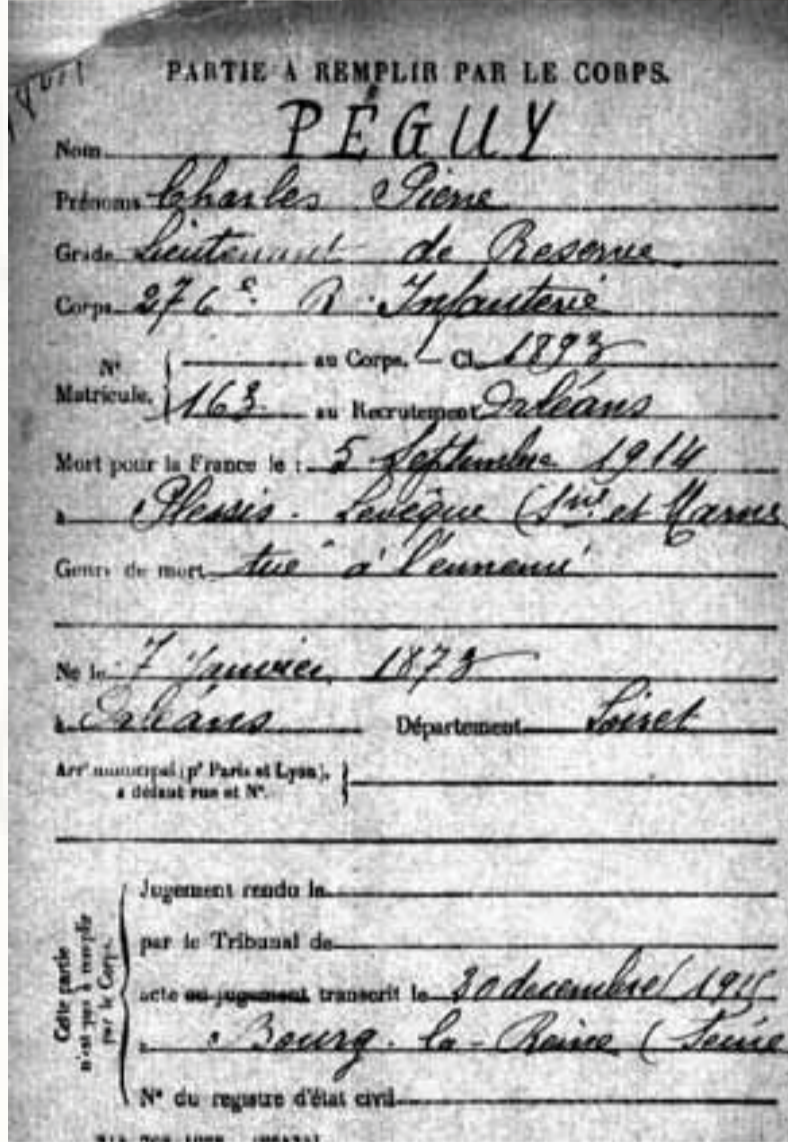 PARTIE À REMPLIR PAR LE CORPS.
Nom PÉGUY
Prénoms Charles Pierre
Grade Lieutenant de Reserve
Corps 276e R. Infanterie
N° Matricule. au Corps. — Cl. 1893
163 au Recrutement Orléans
Mort pour la France le : 5 Septembre 1914
à Plessis-Levêque (Sne et Marne
Genre de mort tué à l'ennemi
Né le 7 Janvier 1873
à Orléans Département Loiret
Arrt municipal (pr Paris et Lyon),
à défaut rue et N°.
Cette partie n'est pas à remplir par le Corps.
Jugement rendu le
par le Tribunal de
acte ou jugement transcrit le 30 decembre 1915
à Bourg-la-Reine (Seine
N° du registre d'état civil